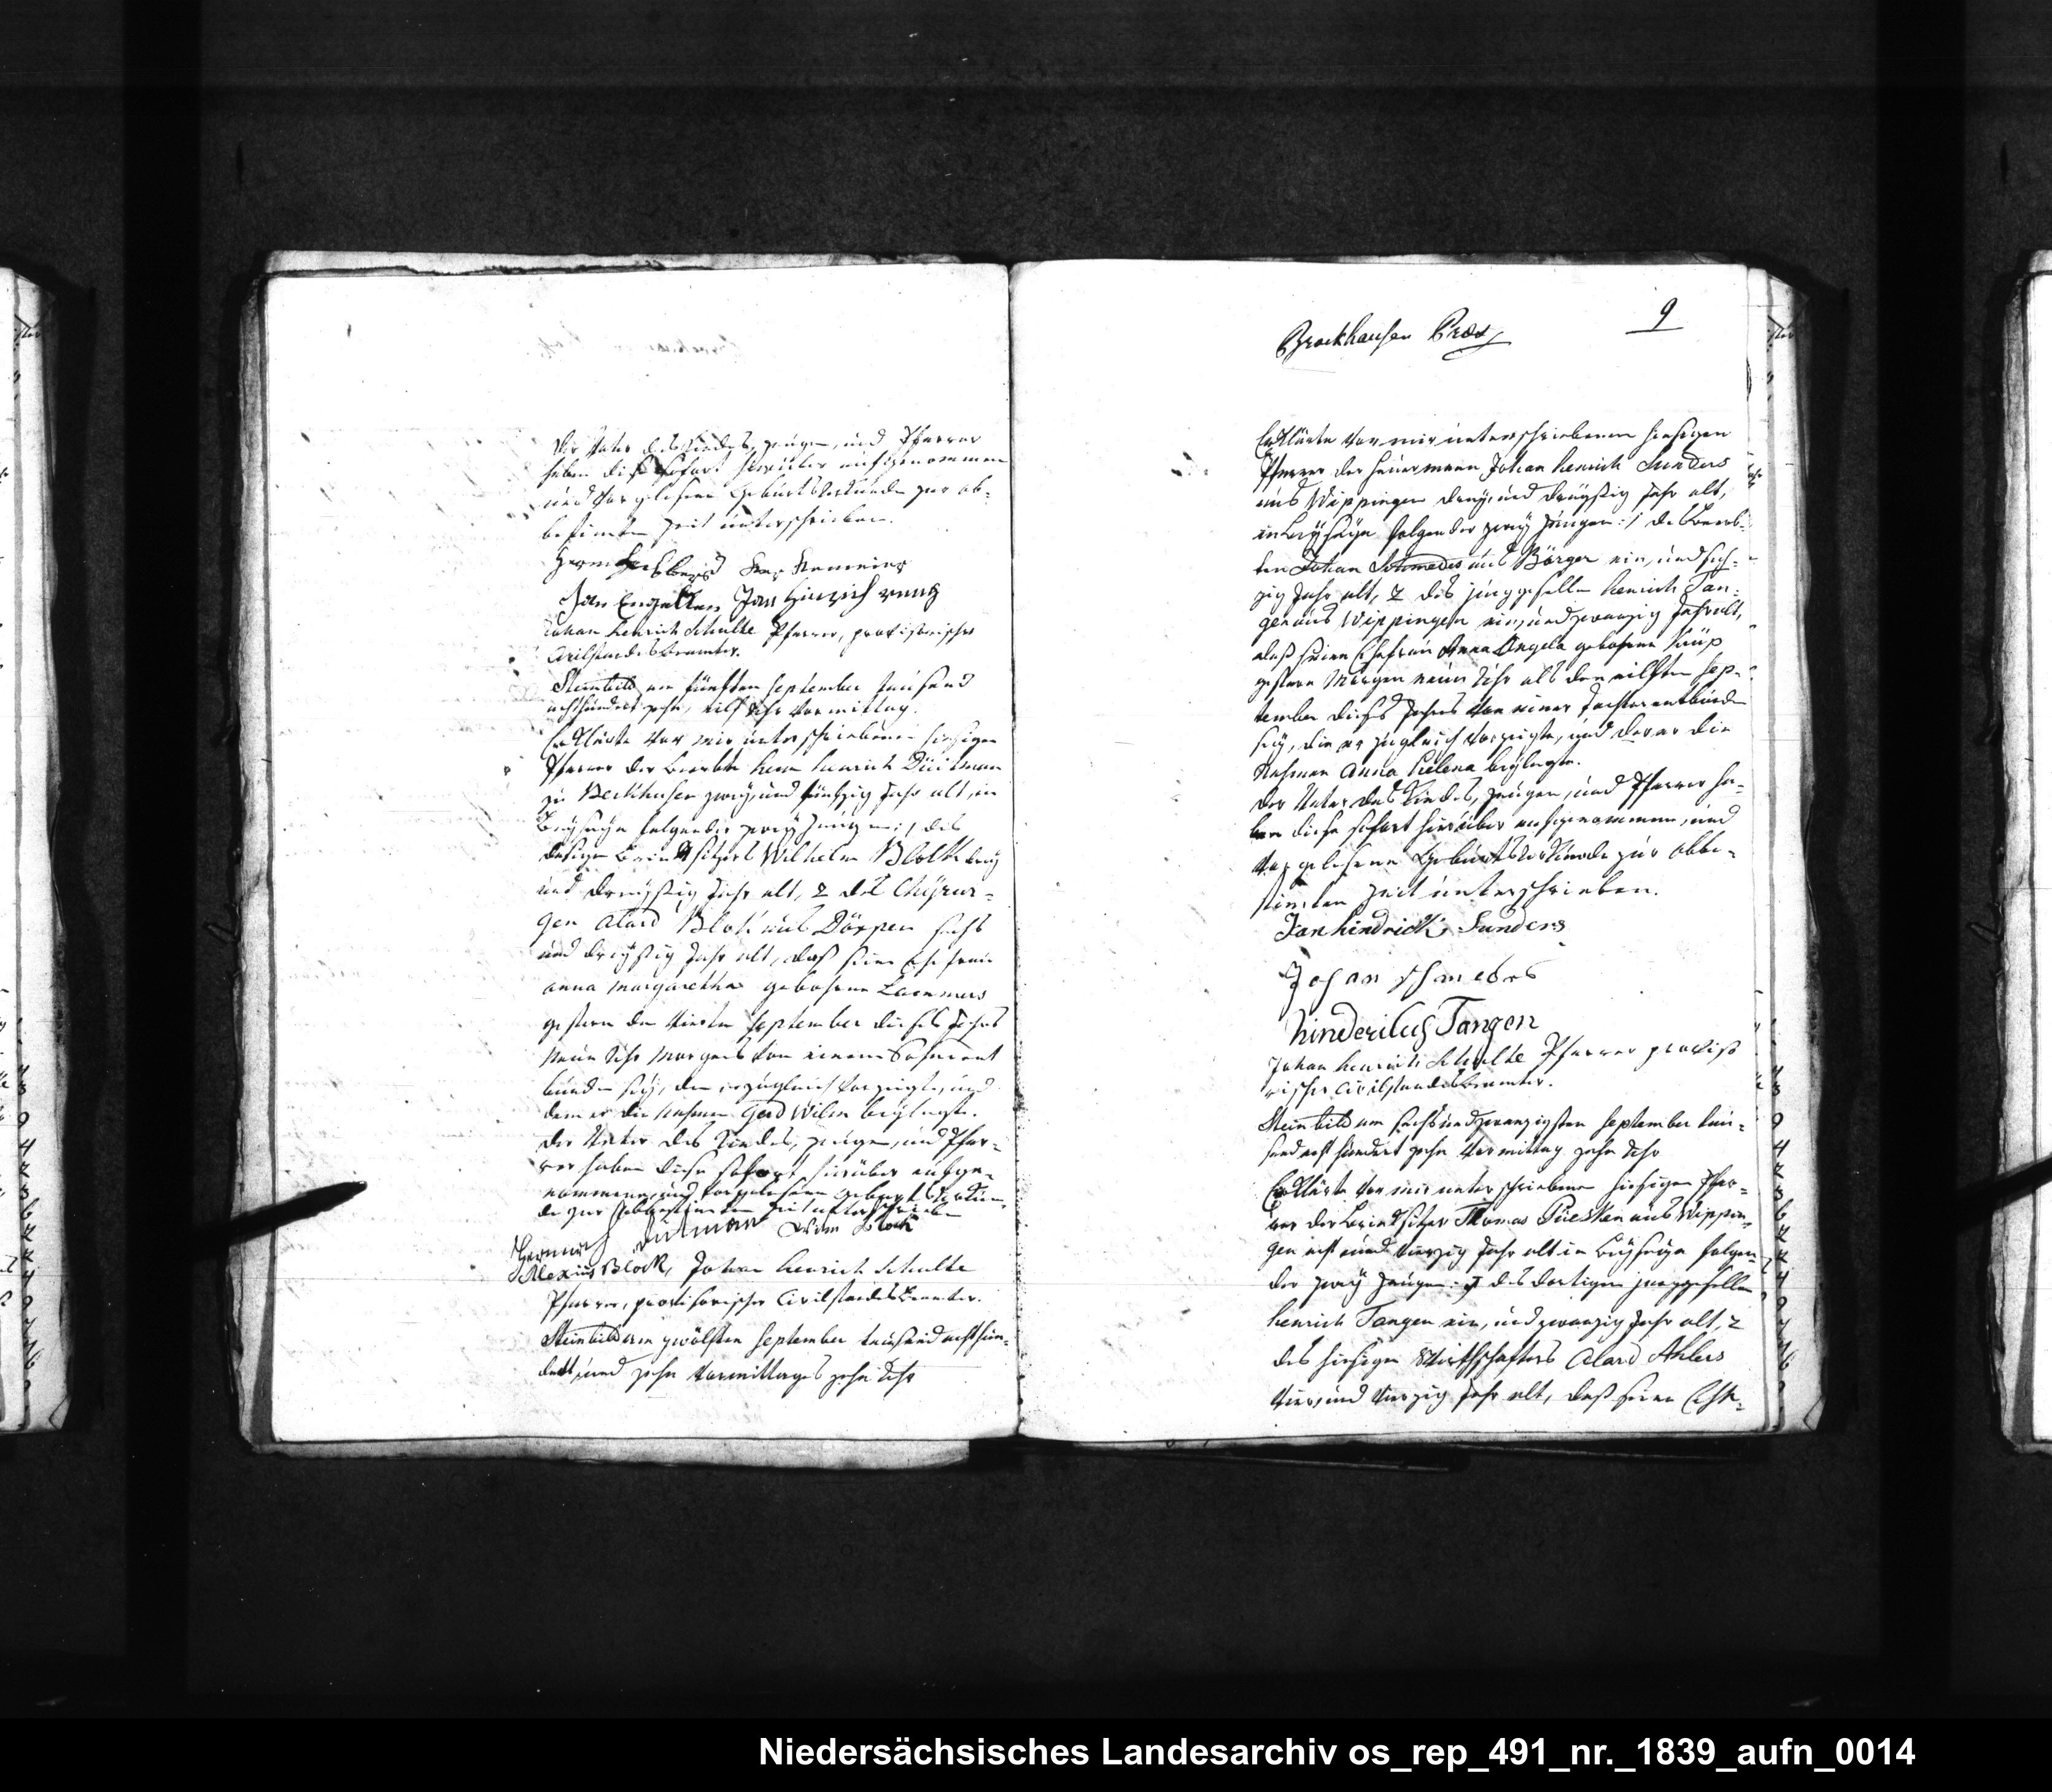 Der Vater des Kindes, Zeugen, und Pfarrer
haben diese sofort hierüber aufgenommene
und vorgelesene Geburtsurkunde zur ab-
bestimten Zeit unterschrieben.
Jan Hinrich
Johan Henrich Schulte Pfarrer, provisorischer
Civilstandsbeamter.
Steinbild am fünften September tausend
achthundert zehn, eilf Uhr Vormittag.
Erklärte vor mir unterschriebenen hiesigen
Pfarrer der Beerbte Herm Henrich Düttman
zu Beckhusen zwey, und fünfzig Jahr alt, in
Beyseyn folgender zwey Zeugen: 1 des
dasigen Brinksitzers Wilhelm Block drey
und dreyßig Jahr alt, 2 des Chyrur-
gen Alard Block aus Dörpen sechs
und dreyßig Jahr alt, daß seine Ehefrau
Anna Margaretha gebohrne Lammers
gestern den vierten September dieses Jahrs
neun Uhr Morgens von einem Sohne ent
bunden sey, den er zugleich vorzeigte, und
dem er die Nahmen Gerd Wilm beylegte.
Der Vater des Kindes, Zeugen, und Pfar-
rer haben diese sofort hierüber aufge-
nommene, und vorgelesene Geburtsurkun-
de zur abbestimten Zeit unterschrieben
Hermich Dutman Wilm Block
Alexius Block, Johan Henrich Schulte
Pfarrer, provisorischer Civilstandsbeamter.
Steinbild am zwölften September tausend achthun-
dert, und zehn Vormittages zehn Uhr
Brockhausen Præs
9
Erklärte vor mir unterschriebenen hiesigen
Pfarrer der Heuermann Johan Henrich Sunders
aus Wippingen drey, und dreyßig Jahr alt,
in Beyseyn folgender zwey Zeugen: 1 des Beerb-
ten Johan Schmedes aus Börger ein, und sech-
zig Jahr alt, 2 des Junggesellen Henrich Tan-
gen aus Wippingen ein, und zwanzig Jahr alt,
daß seine Ehefrau Anna Angela gebohrne
gestern Morgen neun Uhr als den eilften Sep-
tember dieses Jahrs von einer Tochter entbunden
sey, die er zugleich vorzeigte, und derer die
Nahmen Anna Helena beylegte.
Der Vater des Kindes, Zeugen, und Pfarrer ha-
ben diese sofort hierüber aufgenommene, und
vorgelesene Geburtsurkunde zur abbe-
stimten Zeit unterschrieben.
Jan hindrick Sunders
Johan schmedes
hindericus Tangen
Johan Henrich Schulte Pfarrer proviso
rischer Civilstandsbeamter.
Steinbild am sechs und zwanzigsten September tau-
send acht hundert zehn Vormittag zehn Uhr
Erklärte vor mir unterschriebenen hiesigen Pfar-
rer der Brinksitzer Thomas Püesken aus Wippin-
gen acht und vierzig Jahr alt in Beyseyn folgen-
der zwey Zeugen: 1 des dortigen Junggesellen
Henrich Tangen ein, und zwanzig Jahr alt, 2
des hiesigen Wirthschafters Alard Ahlers
vier, und vierzig Jahr alt, daß seine Ehe-
Niedersächsisches Landesarchiv os_rep_491_nr._1839_aufn_0014